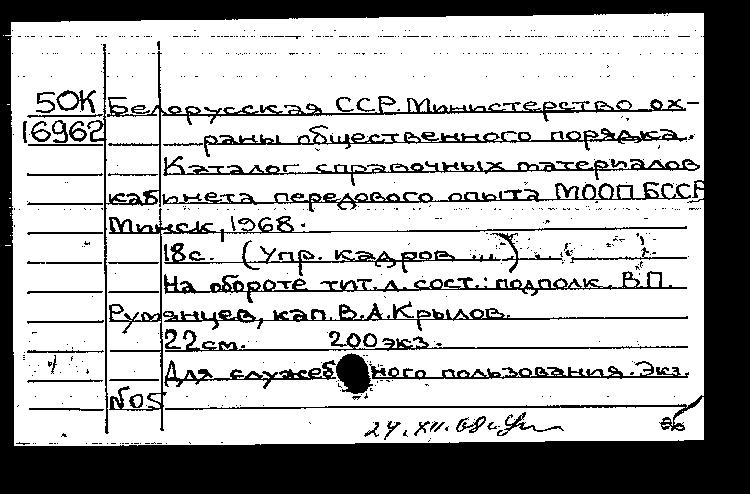 50К Белорусская ССР. Министерство ох-
16962 раны общественного порядка.
Каталог справочных материалов
кабинета передового опыта МООП БССР
Минск, 1968.
18с. (Упр. кадров ...)
На обороте тит. л. сост.: подполк. В.П.
Румянцев, кап. В.А. Крылов.
22см. 200экз.
Для служебного пользования. Экз.
№05
24.XII.68